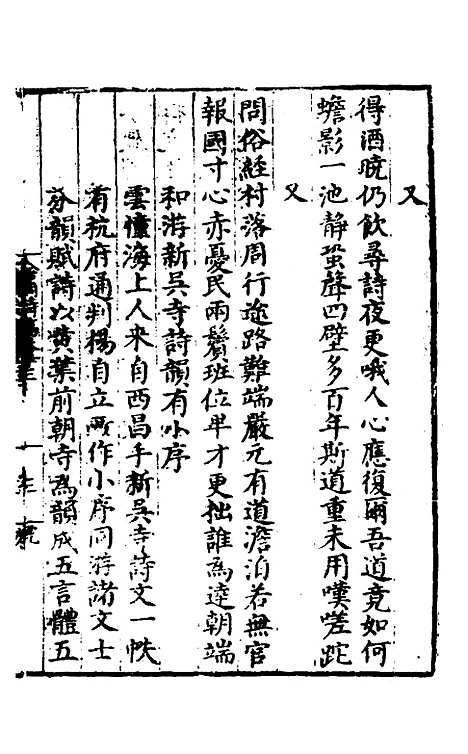 又
得酒晚仍飲尋詩夜更哦人心應復爾吾道竟如何
蟾影一池靜蛩聲四壁多百年斯道重未用嘆蹉跎
又
問俗經村落周行途路難端嚴元有道澹泊若無官
報國寸心赤憂民兩鬢班位卑才更拙誰為達朝端
和游新吳寺詩韻有小序
雲懂海上人來自西昌手新吳寺詩文一帙
有杭府通判楊自立所作小序同游諸文士
分韻賦詩以黄葉前朝寺為韻成五言體五